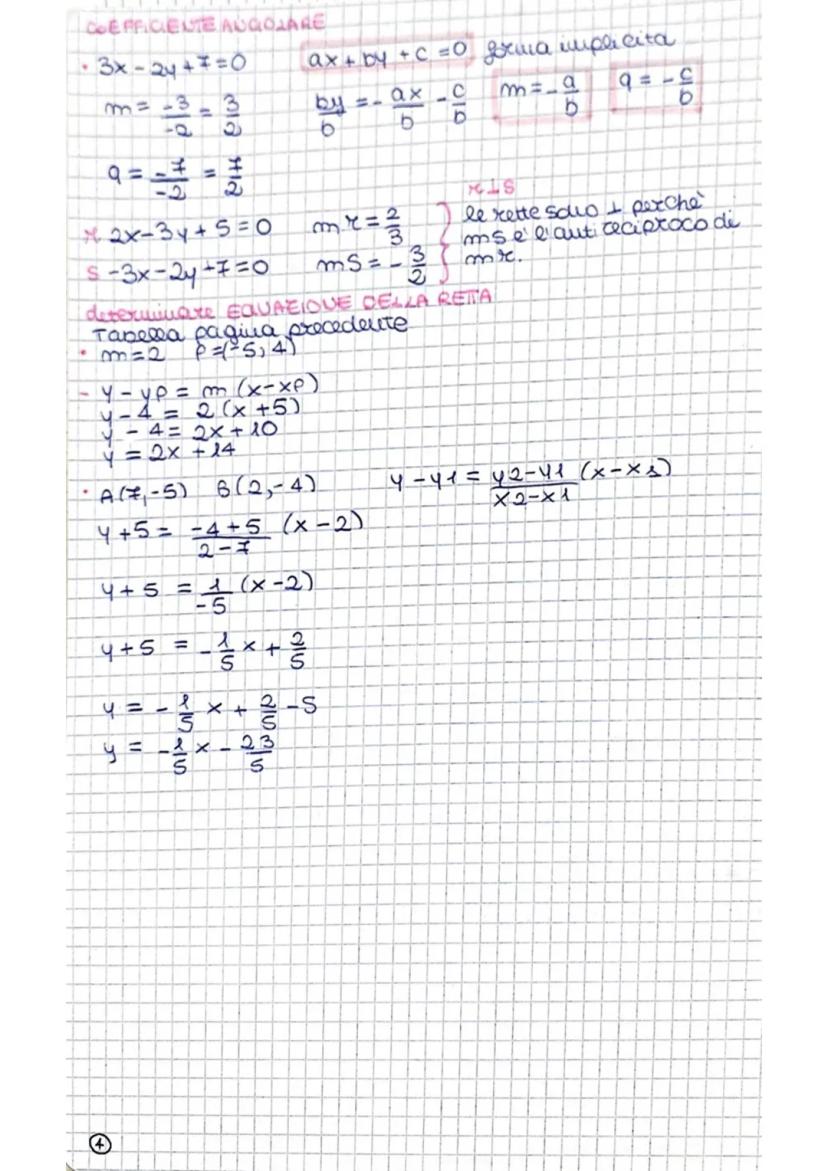 COEFFICIENTE ANGOLARE
• 3x - 2y + 7 = 0    ax + by + c = 0 forma implicita
m = -3/-2 = 3/2    by/b = - ax/b - c/b    m = - a/b    q = - c/b
q = -7/-2 = 7/2
r⊥s
r 2x - 3y + 5 = 0    mr = 2/3    } le rette sono ⊥ perchè
s -3x - 2y + 7 = 0    ms = - 3/2    } ms è l'antireciproco di
mr.
determinare EQUAZIONE DELLA RETTA
Tabella pagina precedente
• m = 2    P = (-5; 4)
- y - yp = m (x - xp)
y - 4 = 2 (x + 5)
y - 4 = 2x + 10
y = 2x + 14
• A(7, -5)    B(2, -4)    y - y1 = y2 - y1/x2 - x1 (x - x1)
y + 5 = -4 + 5/2 - 7 (x - 2)
y + 5 = 1/-5 (x - 2)
y + 5 = - 1/5 x + 2/5
y = - 1/5 x + 2/5 - 5
y = - 1/5 x - 23/5
4